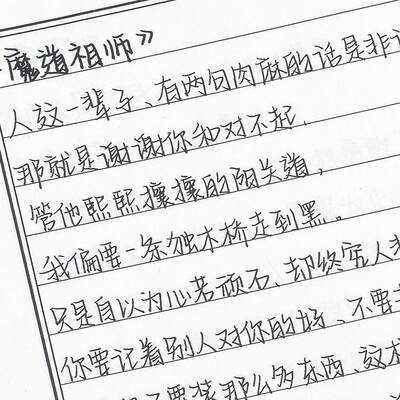 魔道祖师》
人这一辈子、有两句肉麻的话是非
那就是谢谢你和对不起.
管他熙熙攘攘的阳关道,
我偏要一条独木桥走到黑。
只是自以为心若顽石、却终究人
你要记着别人对你的好、不要
要装那么多东西、这